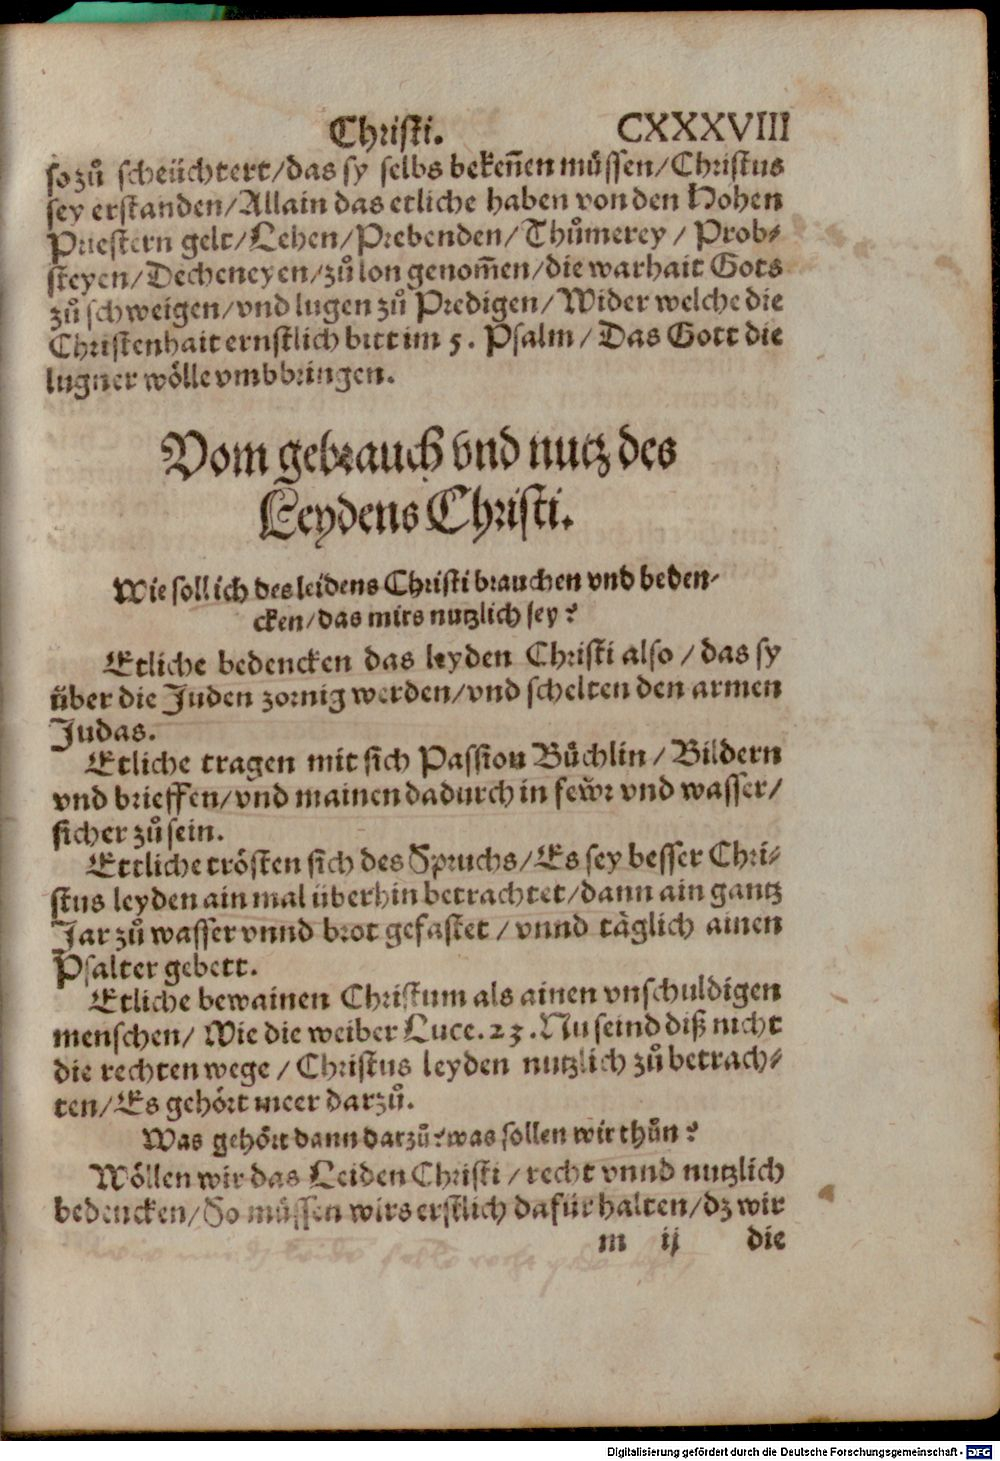 Christi. CXXXVIII
so zů scheüchtert/das sy selbs bekeñen müssen/Christus
sey erstanden/Allain das etliche haben von den Hohen
Priestern gelt/Lehen/Prebenden/Thůmerey/Prob-
steyen/Decheneyen/zů lon genom̃en/die warhait Gots
zů schweigen/vnd lugen zů Predigen/Wider welche die
Christenhait ernstlich bitt im 5. Psalm/Das Gott die
lugner wölle vmbbringen.
Vom gebrauch vnd nutz des
Leydens Christi.
Wie soll ich des leidens Christi brauchen vnd beden-
cken/das mirs nutzlich sey?
Etliche bedencken das leyden Christi also/das sy
über die Juden zornig werden/vnd schelten den armen
Judas.
Etliche tragen mit sich Passion Büchlin/Bildern
vnd brieffen/vnd mainen dadurch in fewr vnd wasser/
sicher zů sein.
Ettliche trösten sich des Spruchs/Es sey besser Chri-
stus leyden ain mal überhin betrachtet/dann ain gantz
Jar zů wasser vnnd brot gefastet/vnnd täglich ainen
Psalter gebett.
Etliche bewainen Christum als ainen vnschuldigen
menschen/Wie die weiber Luce. 23. Nu seind diß nicht
die rechten wege/Christus leyden nutzlich zů betrach-
ten/Es gehört meer darzů.
Was gehört dann darzů? was sollen wir thůn?
Wöllen wir das Leiden Christi/recht vnnd nutzlich
bedencken/So müssen wirs erstlich dafür halten/dz wir
m ij die
Digitalisierung gefördert durch die Deutsche Forschungsgemeinschaft - DFG